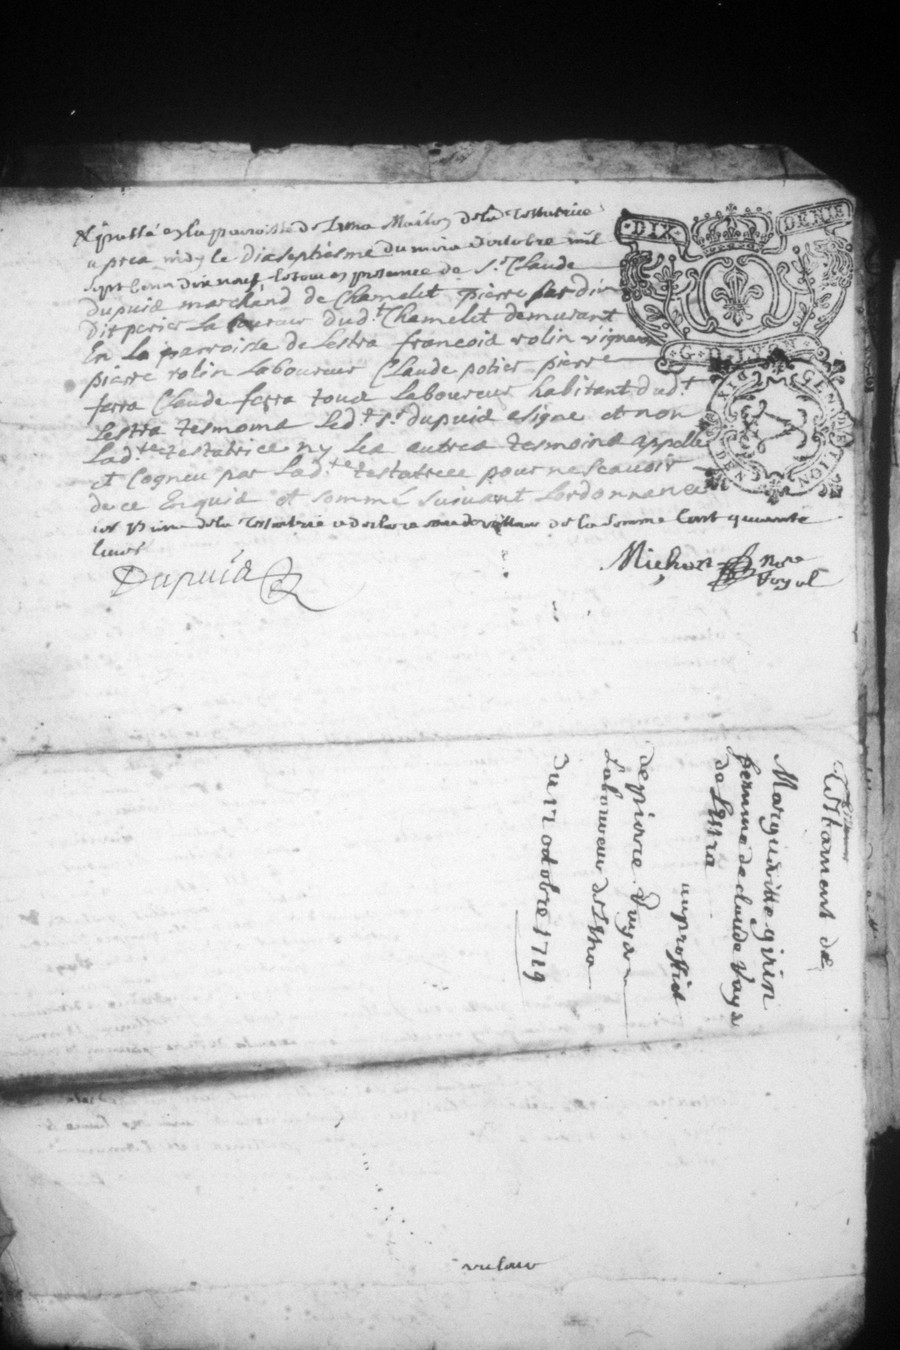 & passé en la paroisse de Letra Maison de la Testatrice
apres midy le dixseptiesme du mois doctobre mil
sept cens dix neuf, le tout en presence de Sr. Claude
dupuis marchand de Chamelet pierre perdin
dit perier Laboureur dud.t Chamelet demurant
En La parroisse de Lestra francois rolin vigneron
pierre rolin Laboureur Claude potier pierre
ferra Claude ferra tous Laboureur habitant dud.t
Lestra tesmoins Led.t Sr. dupuis a signe et non
Lad.te testatrice ny Les autres tesmoins appelle
et Cogneu par Lad.te testatrice pour ne scavoir
de ce Enquis et sommé suivant Lordonnance
de la Testatrice de la somme Cent quarante
livres
Dupuis
Michon Nore
Royal
DIX DENIERS
G. D. LYON
GENERALITE DE LYON DIX DEN
Testament de
Margueritte girin
femme de claude Vaya
de Lestra
au proffict
de pierre Vaya
Laboureur de Letra
du 17 octobre 1719